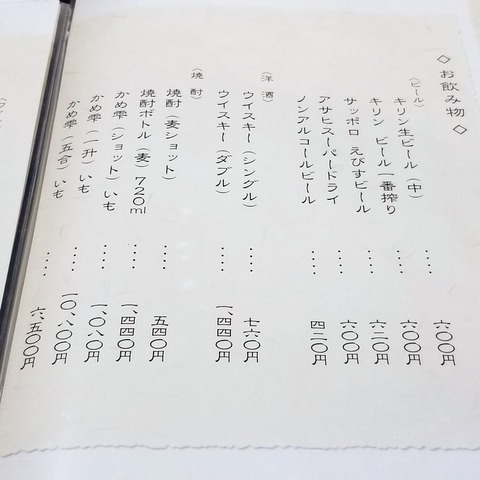 ◇お飲み物◇
（ビール）
キリン生ビール（中）‥‥六〇〇円
キリン ビール一番搾り‥‥六〇〇円
サッポロ えびすビール‥‥六二〇円
アサヒスーパードライ‥‥六〇〇円
ノンアルコールビール‥‥四二〇円
（洋酒）
ウイスキー（シングル）‥‥七六〇円
ウイスキー（ダブル）‥‥一、四四〇円
（焼酎）
焼酎（麦ショット）‥‥五四〇円
焼酎ボトル（麦）720ml‥‥一、四四〇円
かめ雫（ショット）いも‥‥一、〇八〇円
かめ雫（一升）いも‥‥一〇、八〇〇円
かめ雫（五合）いも‥‥六、五〇〇円